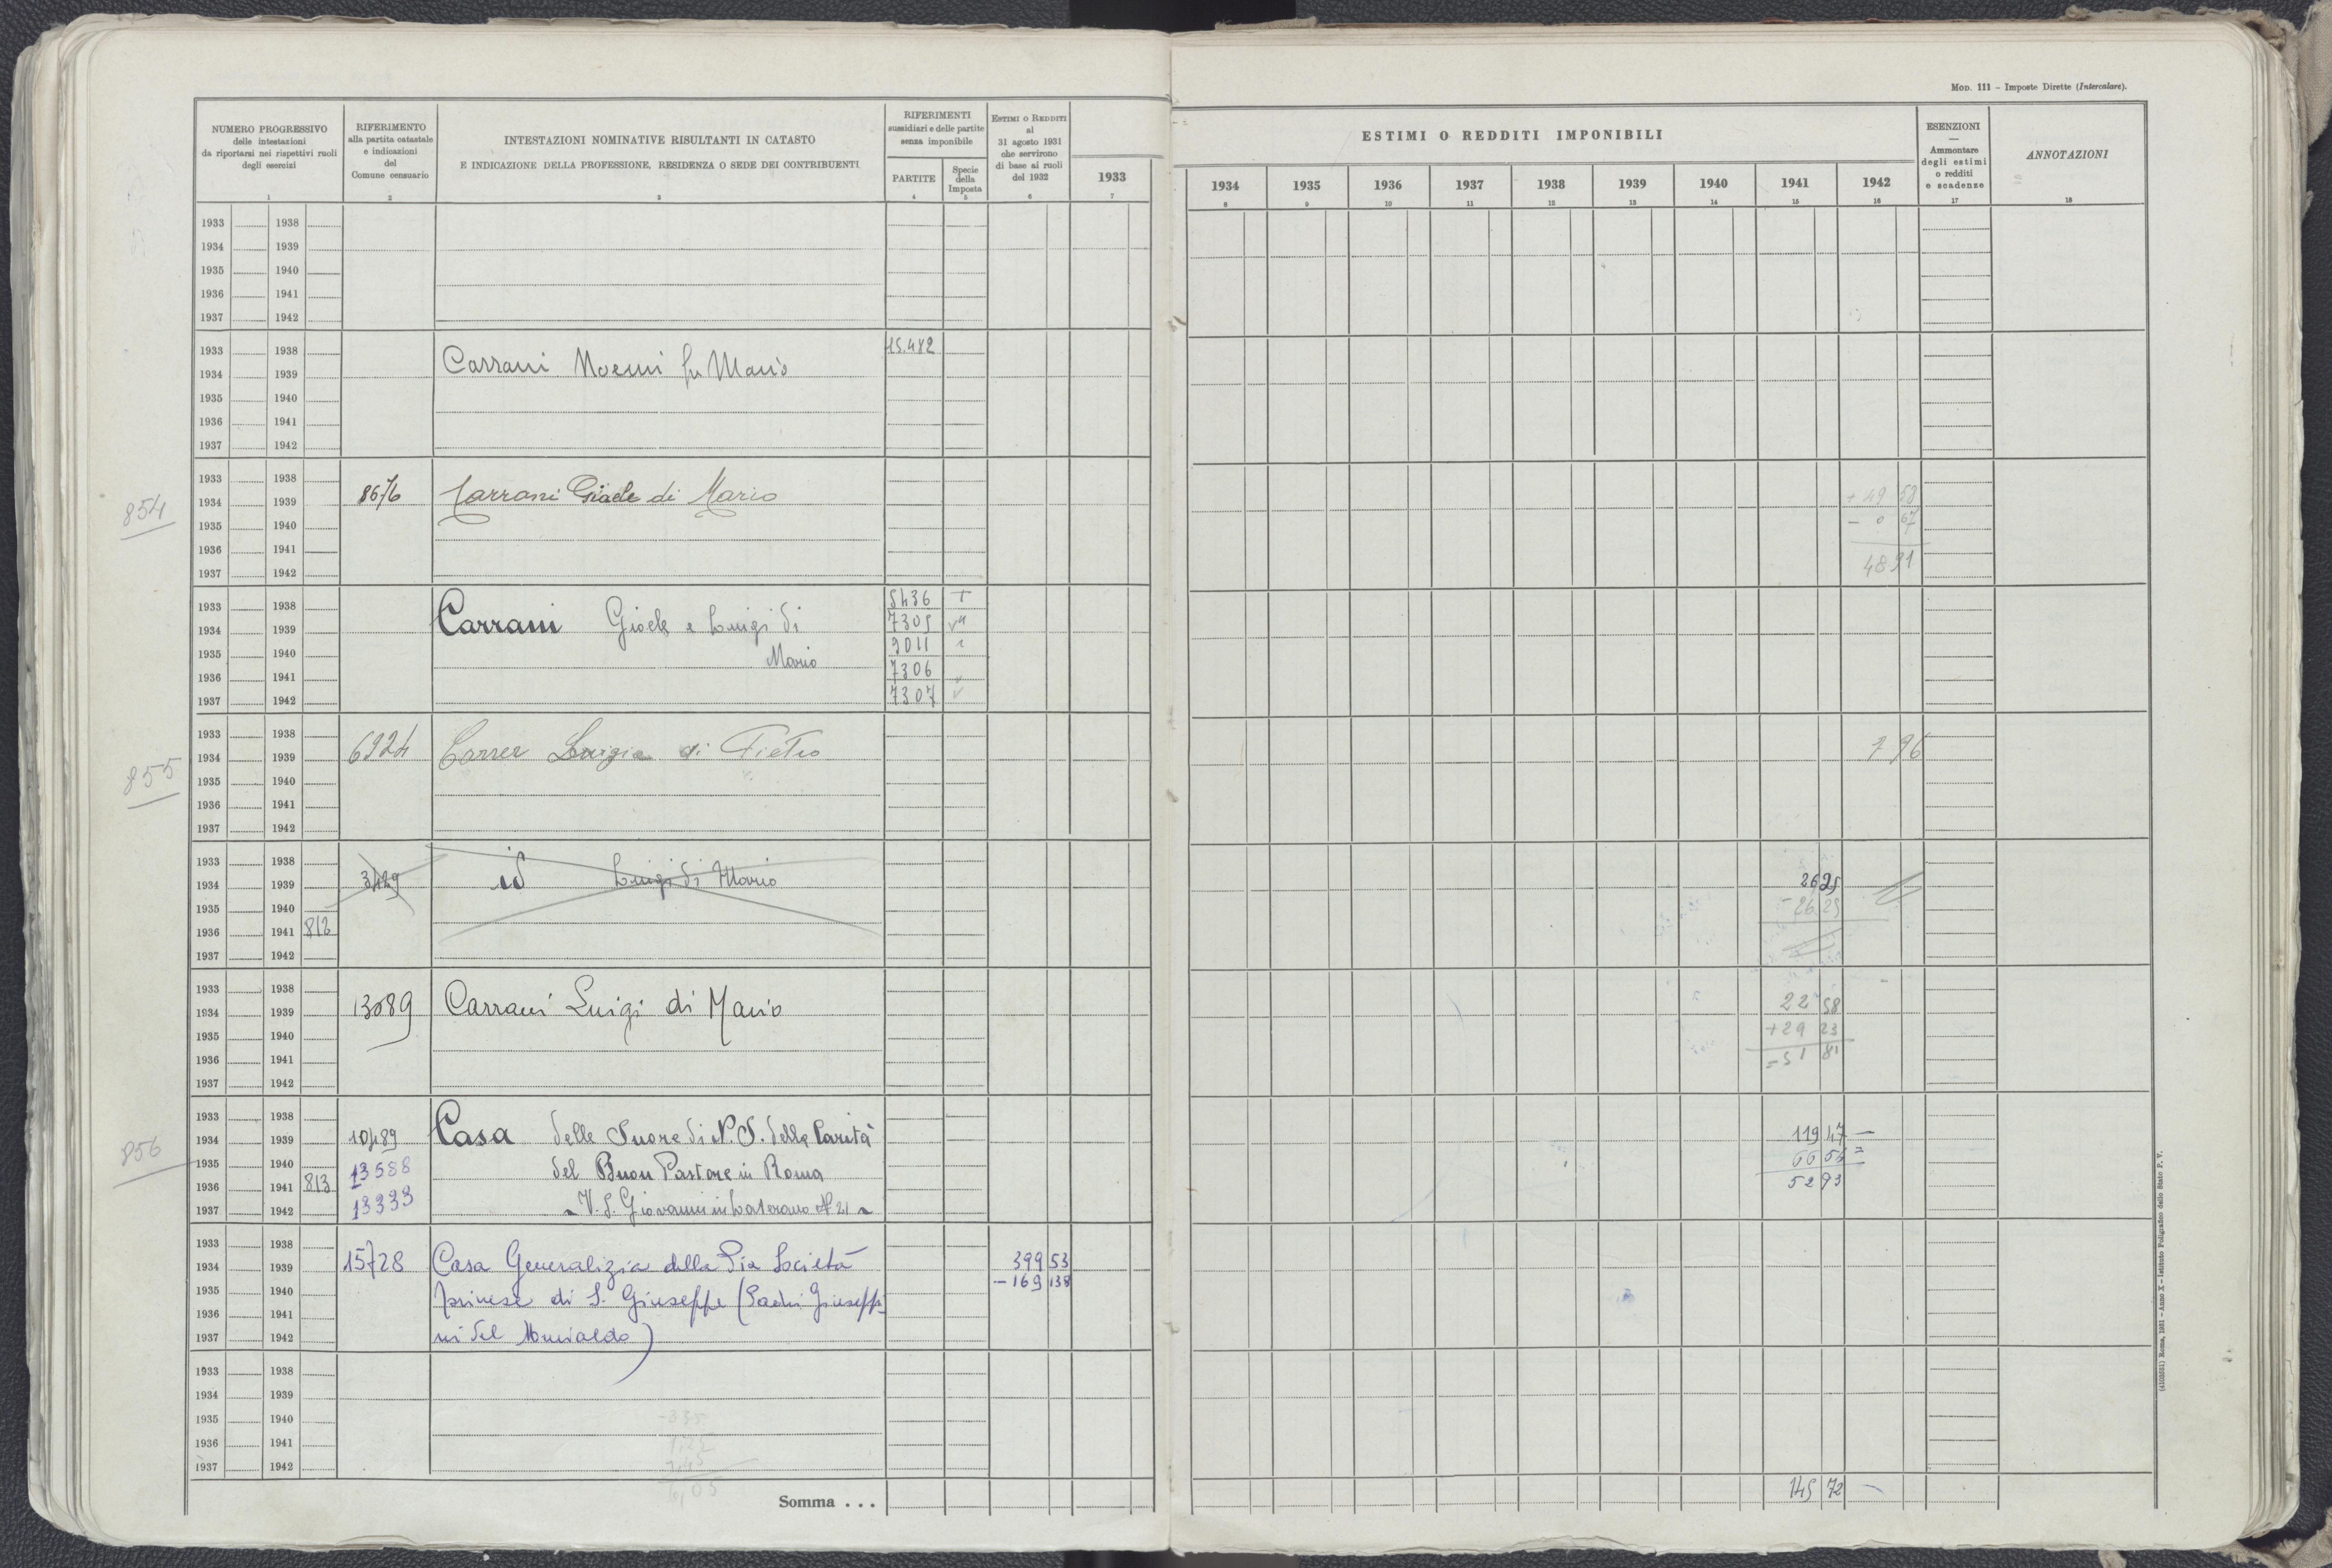 Mod. 111 – Imposte Dirette (Intercalare).
NUMERO PROGRESSIVO
delle intestazioni
da riportarsi nei rispettivi ruoli
degli esercizi
1
RIFERIMENTO
alla partita catastale
e indicazioni
del
Comune censuario
2
INTESTAZIONI NOMINATIVE RISULTANTI IN CATASTO
E INDICAZIONE DELLA PROFESSIONE, RESIDENZA O SEDE DEI CONTRIBUENTI
3
RIFERIMENTI
sussidiari e delle partite
senza imponibile
PARTITE
4
Specie
della
Imposta
5
Estimi o Redditi
al
31 agosto 1931
che servirono
di base ai ruoli
del 1932
6
1933
7
ESTIMI O REDDITI IMPONIBILI
1934 1935 1936 1937 1938 1939 1940 1941 1942
8 9 10 11 12 13 14 15 16
ESENZIONI
—
Ammontare
degli estimi
o redditi
e scadenze
17
ANNOTAZIONI
18
1933 1938
1934 1939
1935 1940
1936 1941
1937 1942
1933 1938 15.482
1934 1939 Carrani Noemi fu Mario
1935 1940
1936 1941
1937 1942
1933 1938
854 1934 1939 8676 Carrani Gioele di Mario + 49 58
1935 1940 – 0 67
1936 1941
1937 1942 48 91
1933 1938 5436 T
1934 1939 Carrani Gioele e Luigi di 7305
1935 1940 Mario 9011
1936 1941 7306
1937 1942 7307
1933 1938
855 1934 1939 6924 Carrer Luigia di Pietro 7 96
1935 1940
1936 1941
1937 1942
1933 1938
1934 1939 3429 id Luigi di Mario 26 25
1935 1940 – 26 25
1936 1941 812
1937 1942
1933 1938
1934 1939 13089 Carrani Luigi di Mario 22 58
1935 1940 + 29 23
1936 1941 = 51 81
1937 1942
1933 1938
856 1934 1939 10489 Casa delle Suore di N. S. della Carità 119 47 —
1935 1940 13588 del Buon Pastore in Roma 66 54 =
1936 1941 813 52 93
1937 1942 13333 V. S. Giovanni in Laterano N. 21
1933 1938
1934 1939 15728 Casa Generalizia della Pia Società 399 53
1935 1940 Torinese di S. Giuseppe (Padri Giuseppi – 169 138
1936 1941
1937 1942 ni del Murialdo)
1933 1938
1934 1939
1935 1940 –335
1936 1941
1937 1942
6,05
Somma . . . 145 72
(4103551) Roma, 1931 – Anno X – Istituto Poligrafico dello Stato P. V.